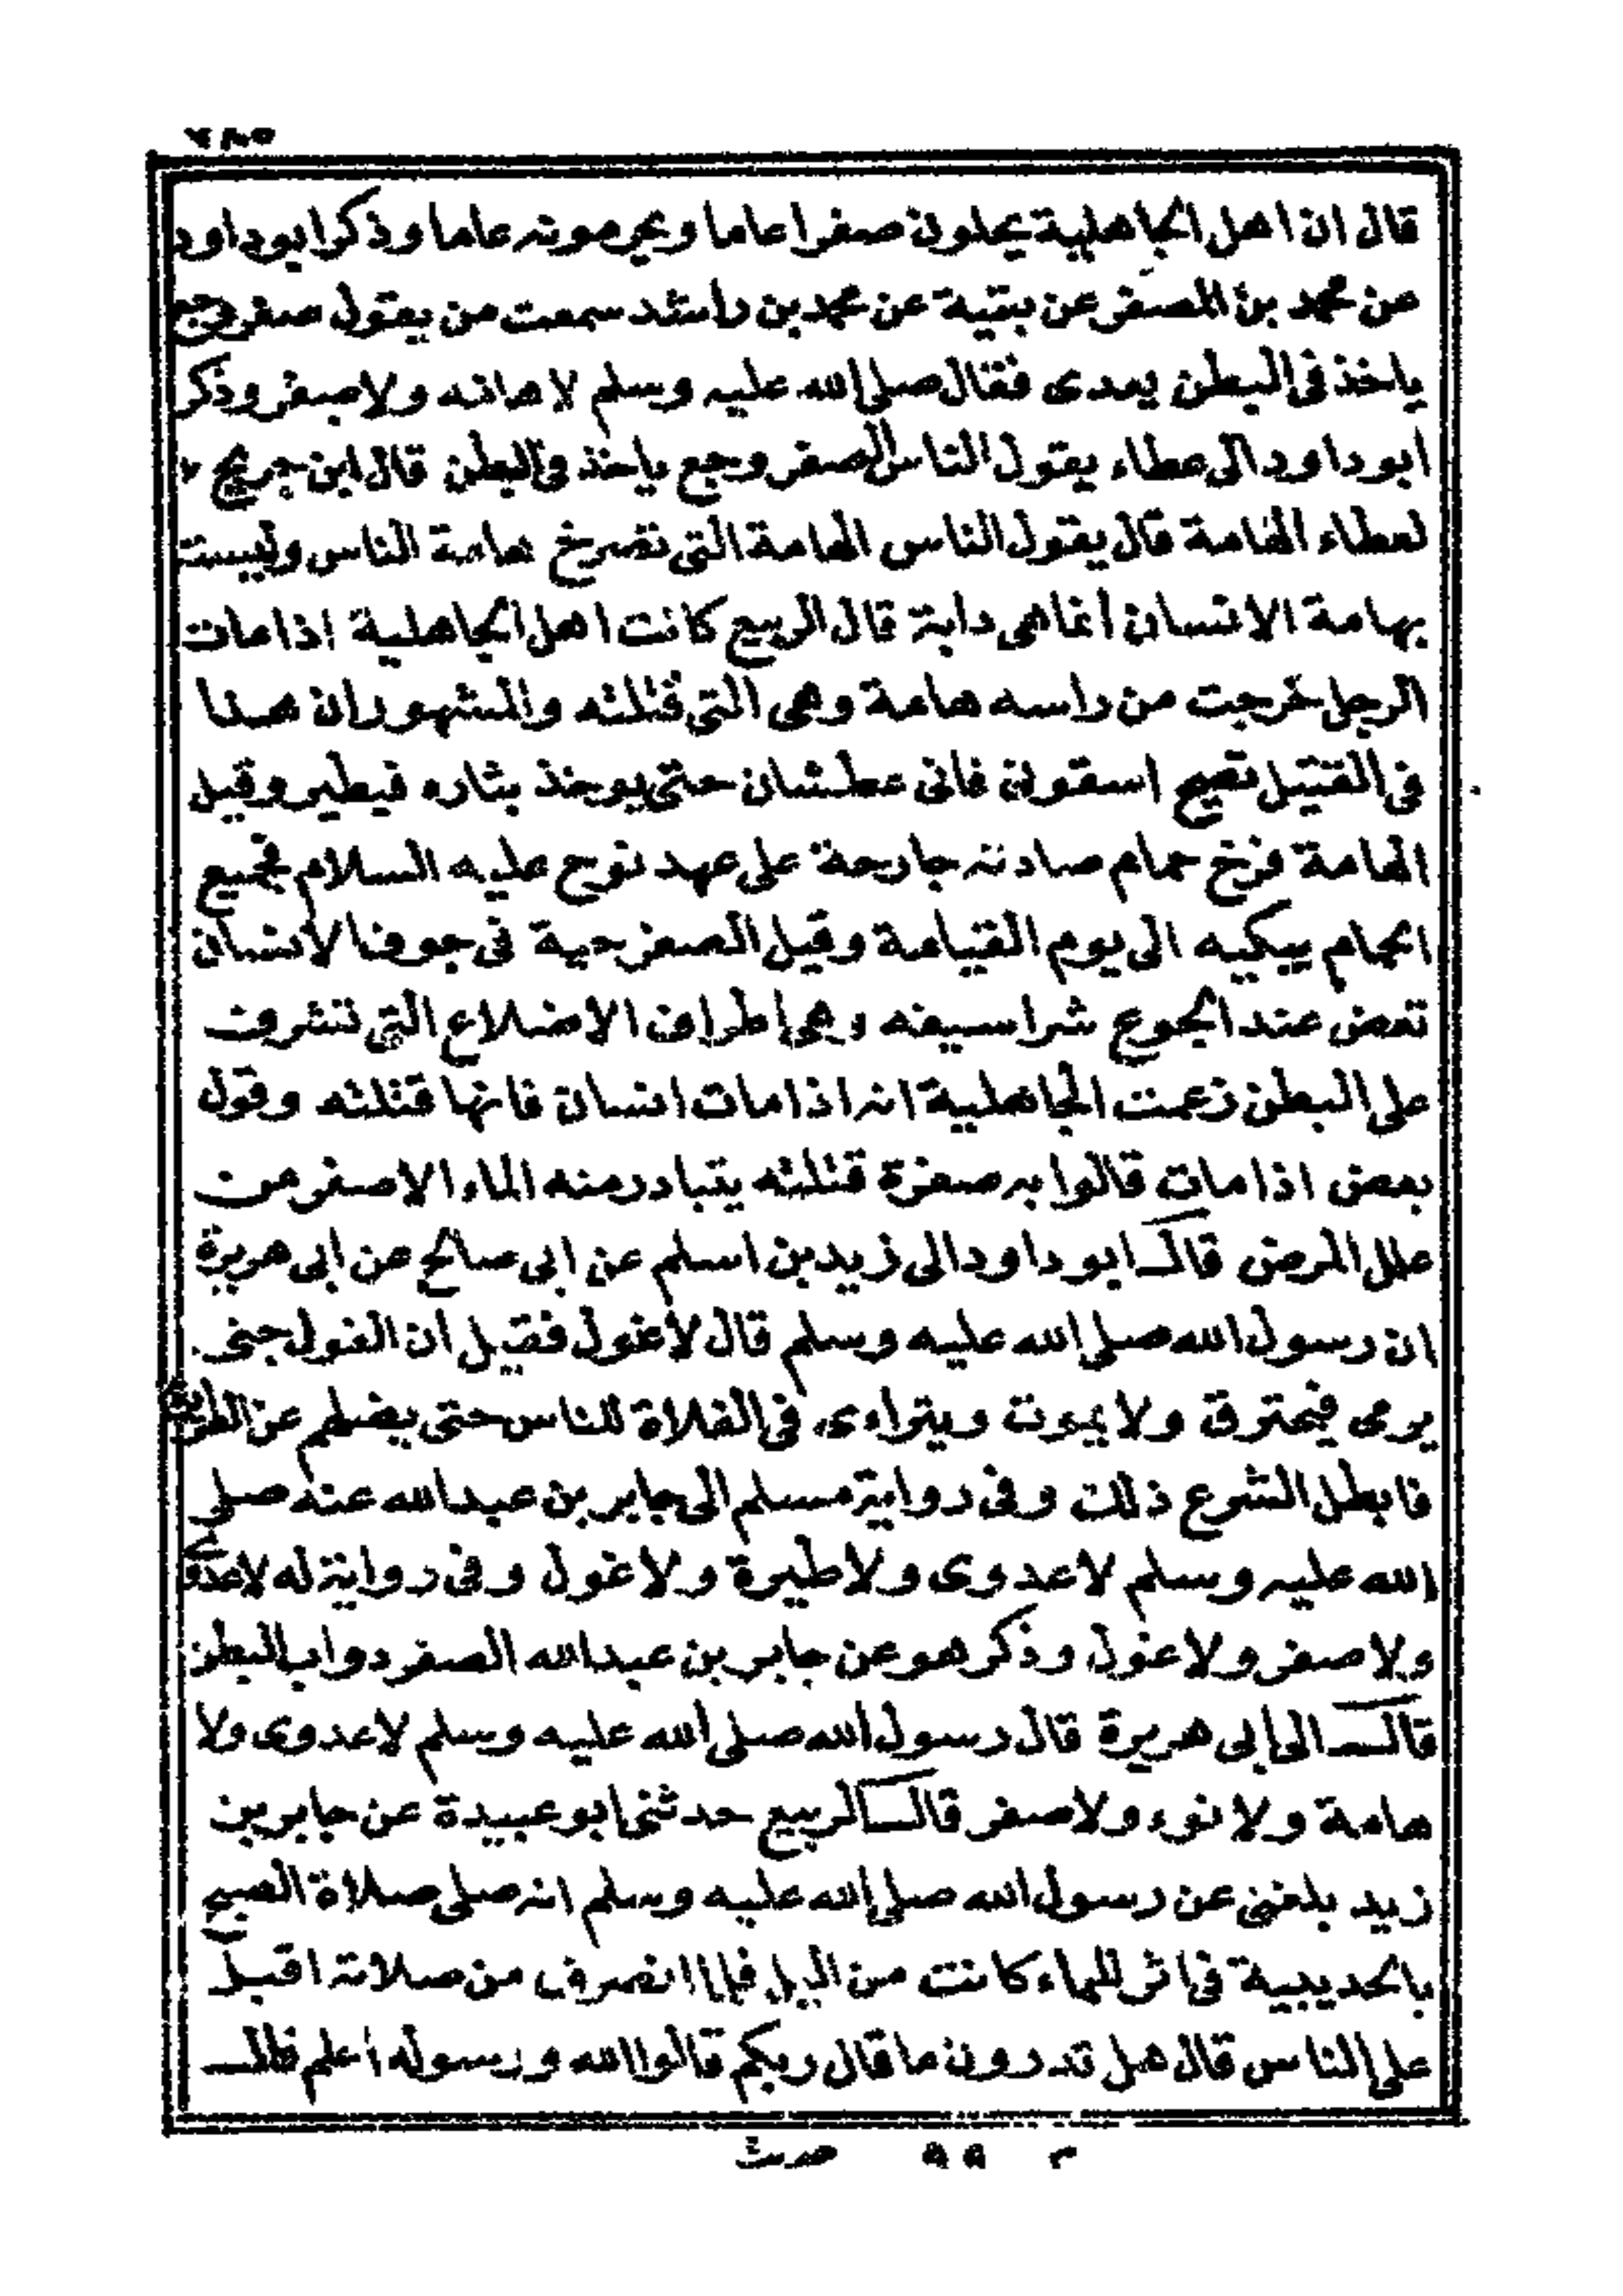 ٧٨٥
قال ان اهل الجاهلية يحلون صفرا عاما ويحرمونه عاما وذكر ابو داود
عن محمد بن المصفى عن بقية عن محمد بن راشد سمعت من يقول صفر وجع
ياخذ فى البطن يعدى فقال صلى الله عليه وسلم لا هامه ولا صفر وذكر
ابو داود الى عطاء يقول الناس الصفر وجع ياخذ فى البطن قال ابن جريج
لعطاء الهامة قال يقول الناس الهامة التى تصرخ هامة الناس وليست
بهامة الانسان انما هى دابة قال الربيع كانت اهل الجاهلية اذا مات
الرجل خرجت من راسه هامة وهى التى قتلته والمشهور ان هذا
فى القتيل تصيح اسقون فانى عطشان حتى يوخذ بثاره فيطير وقيل
الهامة فرخ حمام صادته جارحة على عهد نوح عليه السلام فجميع
الحمام يبكيه الى يوم القيامة وقيل الصفر حية فى جوف الانسان
تعض عند الجوع شراسيفه وهى اطراف الاضلاع التى تشرف
على البطن زعمت الجاهلية انه اذا مات انسان فانها قتلته وقول
بعض اذا مات قالوا به صفرة قتلته يتبادر منه الماء الاصفر من
علل المرض قال ابو داود الى زيد بن اسلم عن ابى صالح عن ابى هريرة
ان رسول الله صلى الله عليه وسلم قال لا غول فقيل ان الغول جنى
يرمى فيحترق ولا يموت ويتراءى فى الفلاة للناس حتى يضلهم عن الطريق
فابطل الشرع ذلك وفى رواية مسلم الى جابر بن عبد الله عنه صلى
الله عليه وسلم لا عدوى ولا طيرة ولا غول وفى رواية له لا عدوى
ولا صفر ولا غول وذكر هو عن جابر بن عبد الله الصفر دواب البطن
قال الى ابى هريرة قال رسول الله صلى الله عليه وسلم لا عدوى ولا
هامة ولا نوء ولا صفر قال الربيع حدثنى ابو عبيدة عن جابر بن
زيد بلغنى عن رسول الله صلى الله عليه وسلم انه صلى صلاة الصبح
بالحديبية فى اثر الماء كانت من اليل فلما انصرف من صلاته اقبل
على الناس قال هل تدرون ما قال ربكم قالوا الله ورسوله اعلم قال
م ٩٩ حديث